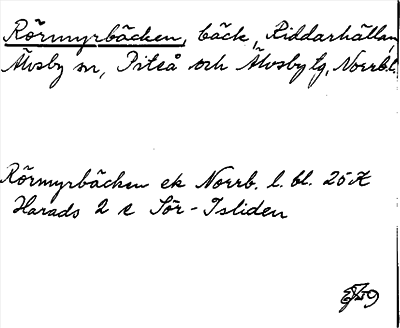 Rörmyrbäcken, bäck, Riddarhällan,
Älvsby sn, Piteå och Älvsby tg, Norrb.l.
Rörmyrbäcken ek Norrb. l. bl. 25
Harads 2 c Sör-Isliden